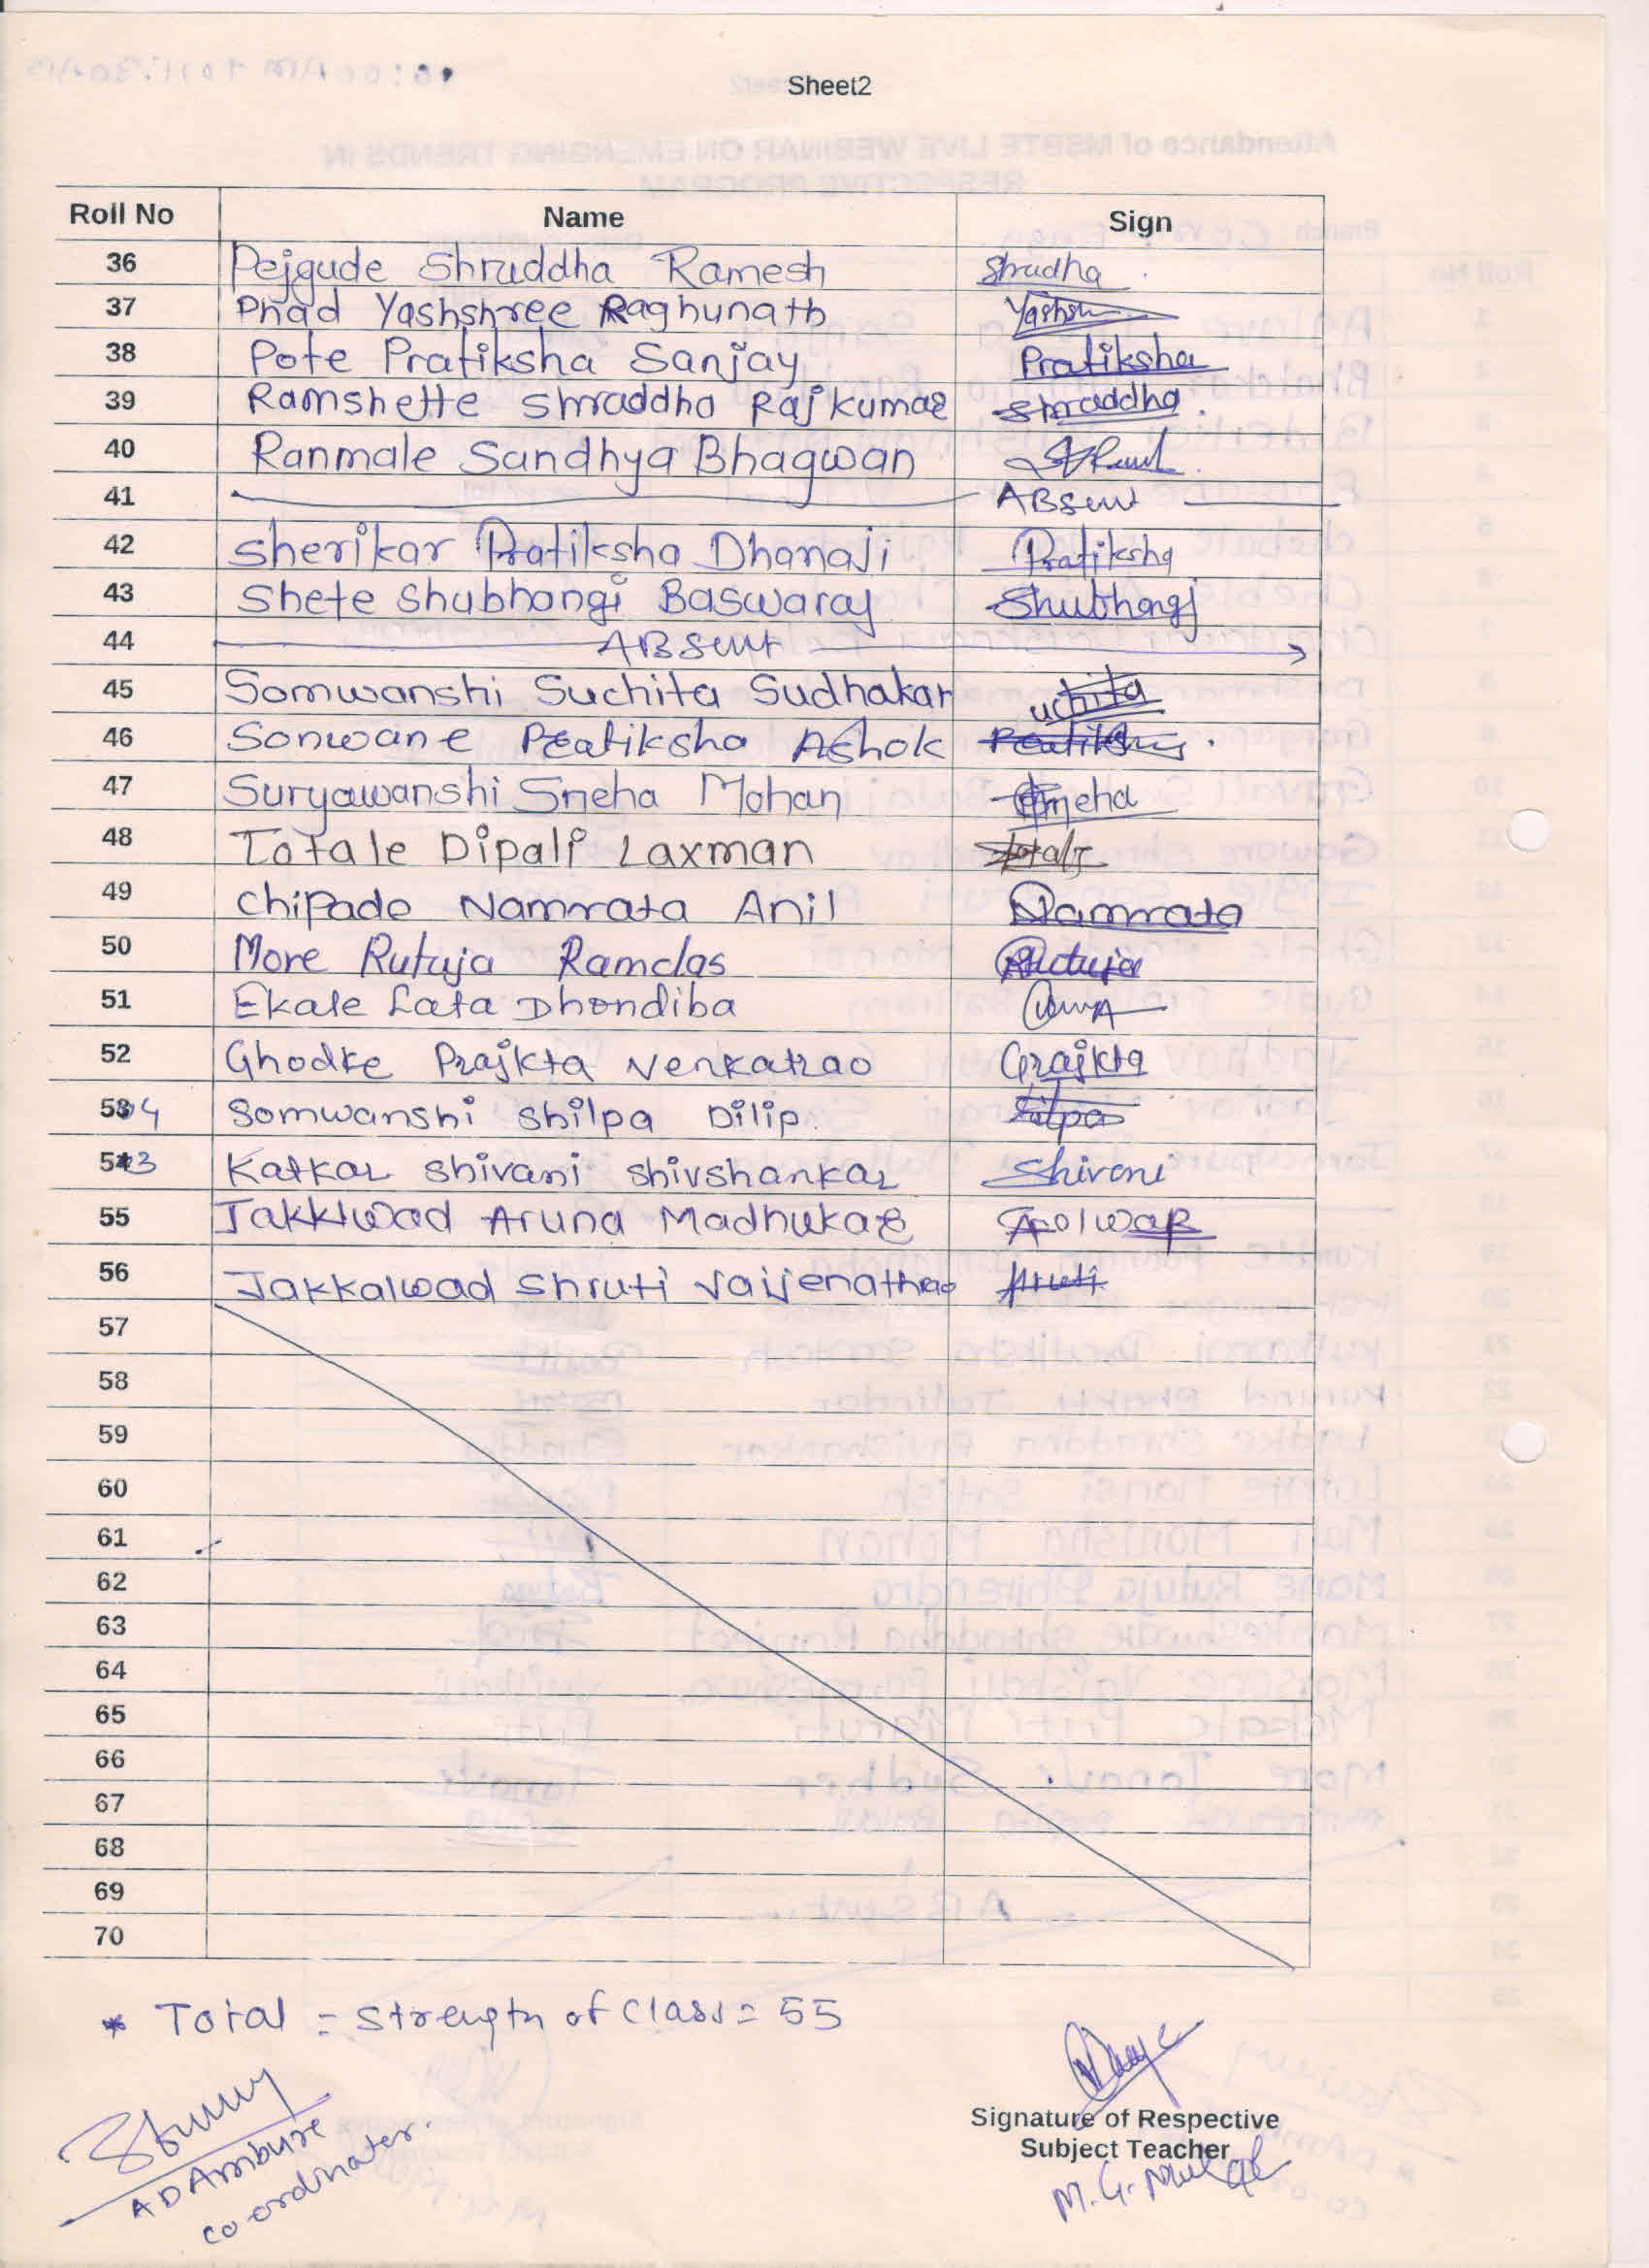 Sheet2
Roll No Name Sign
36 Pejgude Shruddha Ramesh Shrudha
37 Phad Yashshree Raghunath Yashsh
38 Pote Pratiksha Sanjay Pratiksha
39 Ramshette Shraddha Rajkumar Shraddha.
40 Ranmale Sandhya Bhagwan
41 ABsent
42 Sherikar Pratiksha Dhanaji Pratiksha
43 Shete Shubhangi Baswaraj Shubhangi
44 ABsent
45 Somwanshi Suchita Sudhakar uchita
46 Sonwane Pratiksha Ashok Pratiksha.
47 Suryawanshi Sneha Mohan Sneha
48 Totale Dipali Laxman
49 Chipade Namrata Anil Namrata
50 More Rutuja Ramdas Rutuja
51 Ekale Lata Dhondiba
52 Ghodke Prajkta Venkatrao Prajkta
54 Somwanshi Shilpa Dilip.
53 Katkar Shivani Shivshankar Shivani
55 Jakklwad Aruna Madhukar
56 Jakkalwad Shruti Vaijenathrao
57
58
59
60
61
62
63
64
65
66
67
68
69
70
* Total = Strength of Class = 55
Signature of Respective
Subject Teacher
AD Ambure
co-ordinater.